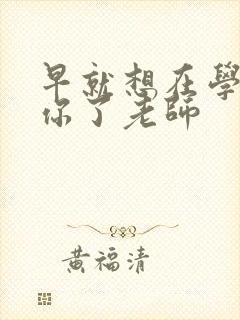 早就想在學
你了老師
黃福清